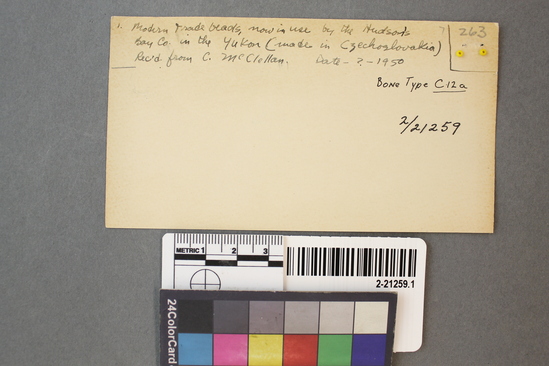 1. Modern trade beads, now in use by the Hudson's
Bay Co. in the Yukon (made in Czechoslovakia)
Rec'd from C. McClellan. Date - ? - 1950
263
Bone Type C12a
2/21259
METRIC 1 2 3
2-21259.1
24ColorCard